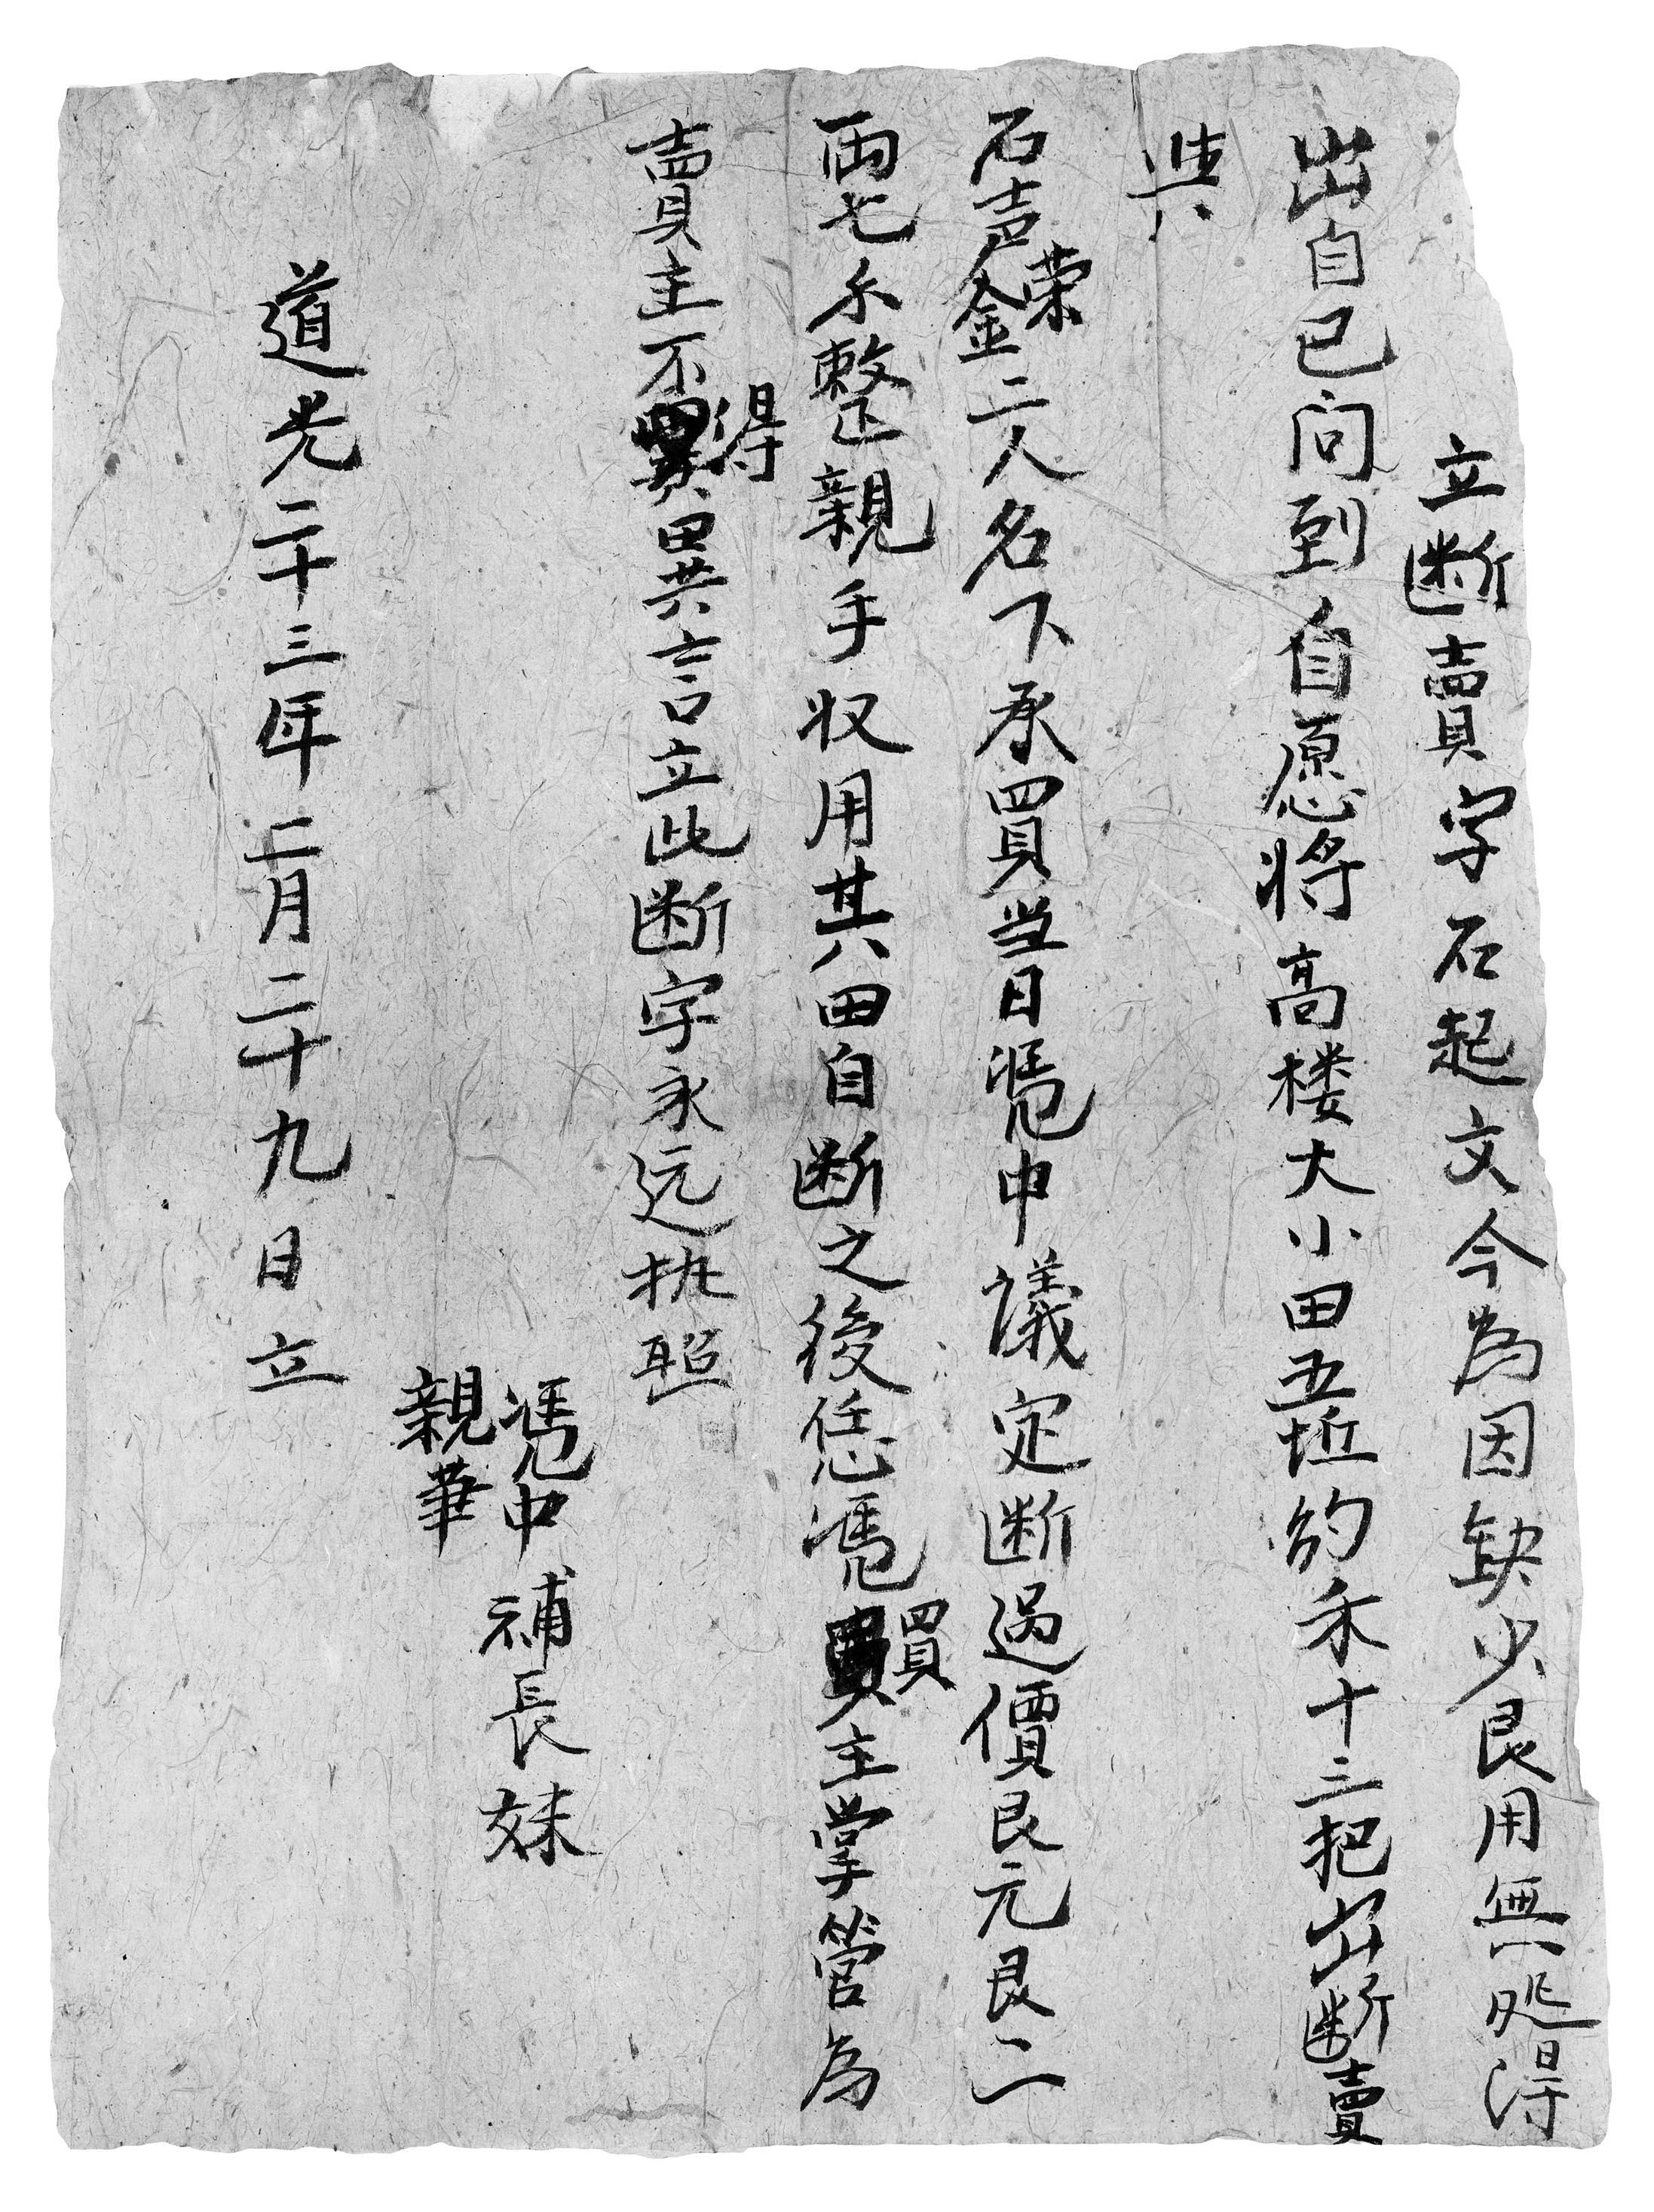 立断賣字石起文今為因缺少艮用無処得
出自己问到自愿将高楼大小田五坵約禾十三把出断賣
與
石声荣金二人名下承買当日馮中議定断過價艮元艮二
両七尒整親手收用其田自断之後恁馮買主掌管為
賣主不得異言立此断字永远执照
馮中補長妹
親筆
道光二十三年二月二十九日立